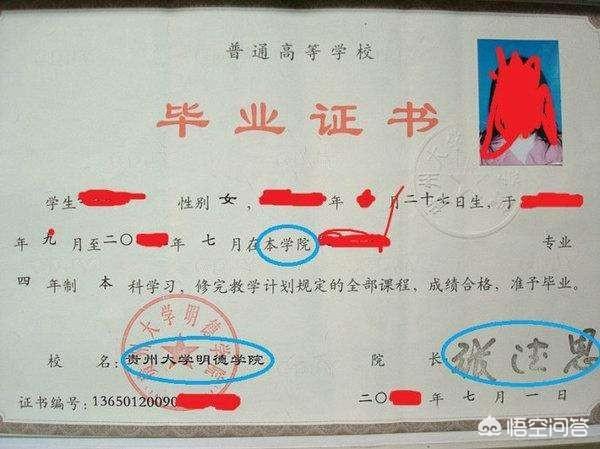 普通高等学校
毕业证书
学生 性别 女， 年 月二十七日生，于
年 九 月至二〇 年 七 月在本学院 专业
四 年制 本 科学习，修完教学计划规定的全部课程，成绩合格，准予毕业。
校 名：贵州大学明德学院 院 长
证书编号：13650120090 二〇 年 七 月 一 日
贵州大学明德学院
悟空问答